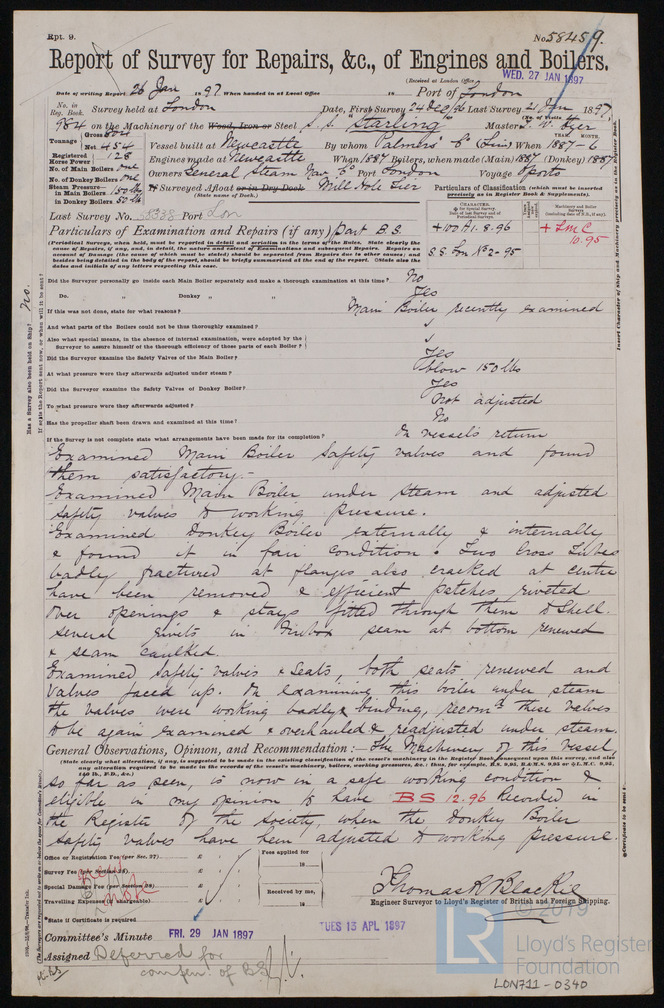 Rpt. 9.
No. 58459.
Report of Survey for Repairs, &c., of Engines and Boilers.
(Received at London Office WED. 27 JAN 1897
Date of writing Report 26 Jan 1897 When handed in at Local Office 18 Port of London
No. in Reg. Book. Survey held at London Date, First Survey 24 Dec/96 Last Survey 21 Jan 1897
(No. of Visits
984 on the Machinery of the Wood, Iron or Steel S.S. "Starling" Master
Tonnage Gross Net 454 Vessel built at Newcastle By whom Palmers' Co (Lim) When 1887-6
YEAR. MONTH.
Registered Horse Power 128 Engines made at Newcastle When 1887 Boilers, when made (Main) 1887 (Donkey) 1887
No. of Main Boilers One Owners General Steam Nav. Co Port London Voyage Oporto
No. of Donkey Boilers One
Steam Pressure in Main Boilers 150 lbs If Surveyed Afloat or in Dry Dock Mill Hole Tier
in Donkey Boilers 50 lbs (State name of Dock.)
Particulars of Classification (which must be inserted precisely as in Register Book & Supplements).
Last Survey No. Port Lon
CHARACTER.
Machinery and Boiler Surveys
Particulars of Examination and Repairs (if any) Part B.S.
+100A1. 8.96
S.S. Lon No 2-95
+ LMC 10.95
(Periodical Surveys, when held, must be reported in detail and seriatim in the terms of the Rules. State clearly the cause of Repairs, if any, and, in detail, the nature and extent of Examinations and subsequent Repairs. Repairs on account of Damage (the cause of which must be stated) should be separated from Repairs due to other causes; and besides being detailed in the body of the report, should be briefly summarised at the end of the report. State also the dates and initials of any letters respecting this case.
Did the Surveyor personally go inside each Main Boiler separately and make a thorough examination at this time? No
Do. " Donkey " " Yes
If this was not done, state for what reasons? Main Boiler recently examined
And what parts of the Boilers could not be thoroughly examined?
Also what special means, in the absence of internal examination, were adopted by the Surveyor to assure himself of the thorough efficiency of those parts of each Boiler?
Did the Surveyor examine the Safety Valves of the Main Boiler? Yes
At what pressure were they afterwards adjusted under steam? blow 150 lbs
Did the Surveyor examine the Safety Valves of Donkey Boiler? Yes
To what pressure were they afterwards adjusted? Not adjusted
Has the propeller shaft been drawn and examined at this time? No
If the Survey is not complete state what arrangements have been made for its completion? On vessel's return
Examined Main Boiler safety valves and found
them satisfactory.-
Examined Main Boiler under steam and adjusted
safety valves to working pressure.
Examined Donkey Boiler externally & internally
& found it in fair condition. Two Cross Tubes
badly fractured at flanges also cracked at centre
have been removed & efficient patches riveted
over openings & stays fitted through them to Shell.
Several rivets in Firebox seam at bottom renewed
& seam caulked.
Examined Safety valves & Seats, both seats renewed and
Valves faced up. On examining this boiler under steam
the valves were working badly & binding, recomd these valves
to be again examined & overhauled & readjusted under steam.
General Observations, Opinion, and Recommendation:— The Machinery of this vessel,
(State clearly what alteration, if any, is suggested to be made in the existing classification of the vessel's machinery in the Register Book, consequent upon this survey, and also any alteration required to be made in the records of the vessel's machinery, boilers, working pressures, &c.: thus, for example, B.S. 9,95, B.&M.S. 9,95 or L.M.C. 9,95, 140 lb., F.D., &c.)
so far as seen, is now in a safe working condition &
eligible in my opinion to have BS 12.96 Recorded in
the Register of the Society, when the Donkey Boiler
safety valves have been adjusted to working pressure.
Office or Registration Fee (per Sec. 27) £
Survey Fee (per Section 28) £
Special Damage Fee (per Section 28) £
Travelling Expenses (if chargeable) £
Fees applied for 18
Received by me, 18
Thomas R Blackie
Engineer Surveyor to Lloyd's Register of British and Foreign Shipping.
*State if Certificate is required
Committee's Minute FRI. 29 JAN 1897 TUES 13 APL 1897
Assigned Deferred for
compln. of BS
© 2019
LR
Lloyd's Register
Foundation
LON711-0340
Has a Survey also been held on Ship? No.
If so is the Report sent now, or when will it be sent?
Insert Character of Ship and Machinery precisely as in the Register Book.